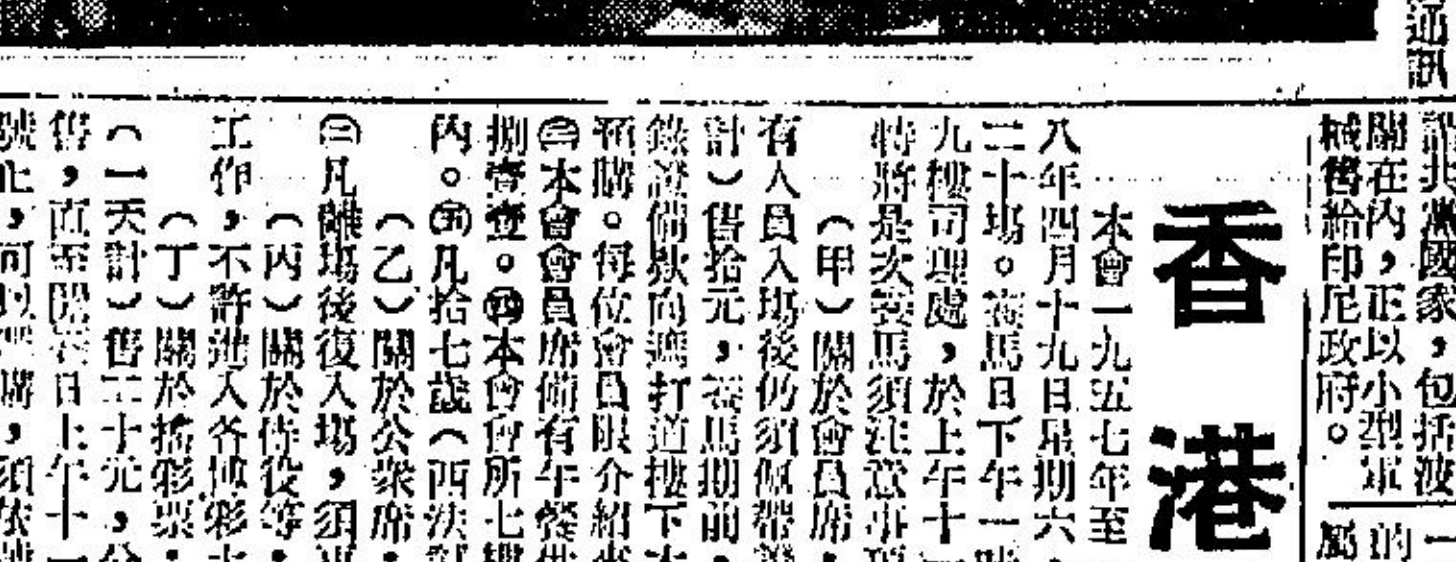 通訊
共黨國家，包括波
關在內，正以小型軍
械舊給印尼政府。
一
的
屬
香港
本會一九五七年至
八年四月十九日星期六
二十場。賽馬日下午一時
九樓司理處，於上午十一
特將是次賽馬須注意事項
（甲）關於會員席
有人員入場後仍須佩帶
計）售拾元，賽馬期前
向遮打道樓下
預購。每位會員限介紹
㊂本會會員席備有午餐
捌壹壹。㊃本會會所七樓
內。㊄凡拾七歲（西法
（乙）關於公衆席
㊂凡離場後復入場，須
（丙）關於侍役等
工作，不許進入各博彩
（丁）關於搖彩票
（一天計）售二十元，
售，直至開賽日上午十一
號止，可以